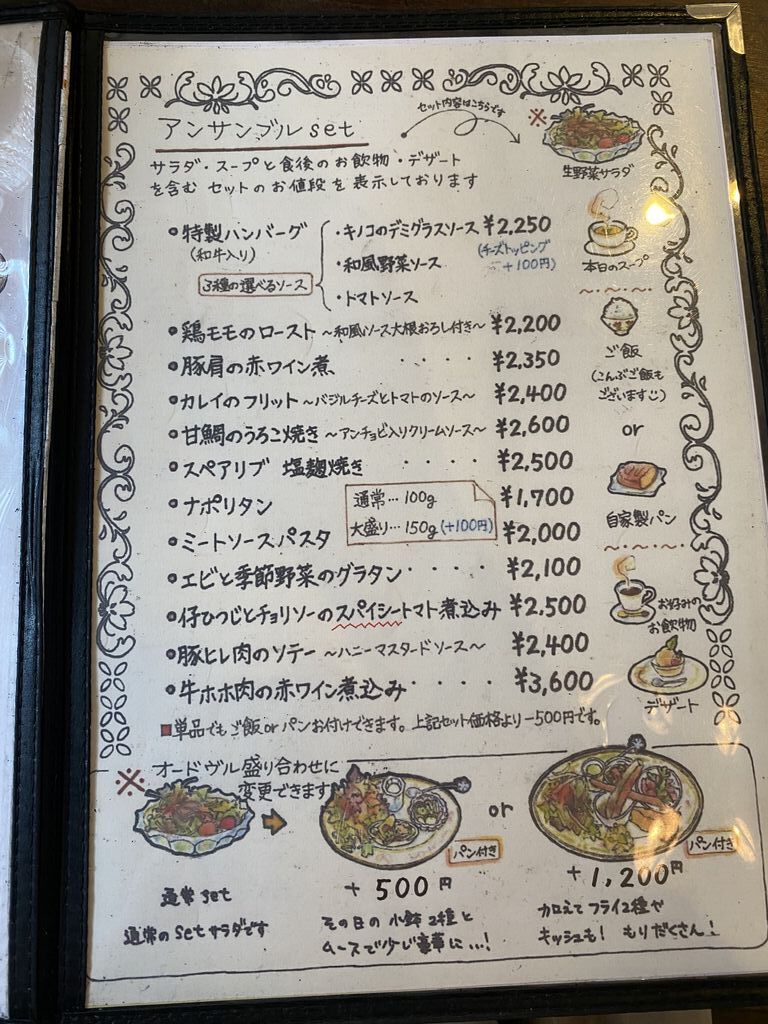 アンサンブルset
セット内容はこちらです
※
生野菜サラダ
サラダ・スープと食後のお飲物・デザート
を含む セットのお値段を表示しております
・特製ハンバーグ
(和牛入り)
3種の選べるソース
・キノコのデミグラスソース ¥2,250
(チーズトッピング
+100円)
・和風野菜ソース
・トマトソース
本日のスープ
・鶏モモのロースト 〜和風ソース大根おろし付き〜 ¥2,200
・豚肩の赤ワイン煮 ・・・・ ¥2,350
・カレイのフリット 〜バジルチーズとトマトのソース〜 ¥2,400
・甘鯛のうろこ焼き 〜アンチョビ入りクリームソース〜 ¥2,600
・スペアリブ 塩麹焼き ・・・・ ¥2,500
・ナポリタン ¥1,700
・ミートソースパスタ ¥2,000
通常…100g
大盛り…150g(+100円)
・エビと季節野菜のグラタン・・・・ ¥2,100
・仔ひつじとチョリソーのスパイシートマト煮込み ¥2,500
・豚ヒレ肉のソテー 〜ハニーマスタードソース〜 ¥2,400
・牛ホホ肉の赤ワイン煮込み・・・・ ¥3,600
ご飯
(こんぶご飯も
ございます)
or
自家製パン
お好みの
お飲物
デザート
■単品でもご飯orパンお付けできます。上記セット価格より−500円です。
※オードヴル盛り合わせに
変更できます
通常set
通常のsetサラダです
パン付き
+500円
その日の小鉢2種と
ムースで少し豪華に…!
or
パン付き
+1,200円
加えてフライ2種や
キッシュも! もりだくさん!